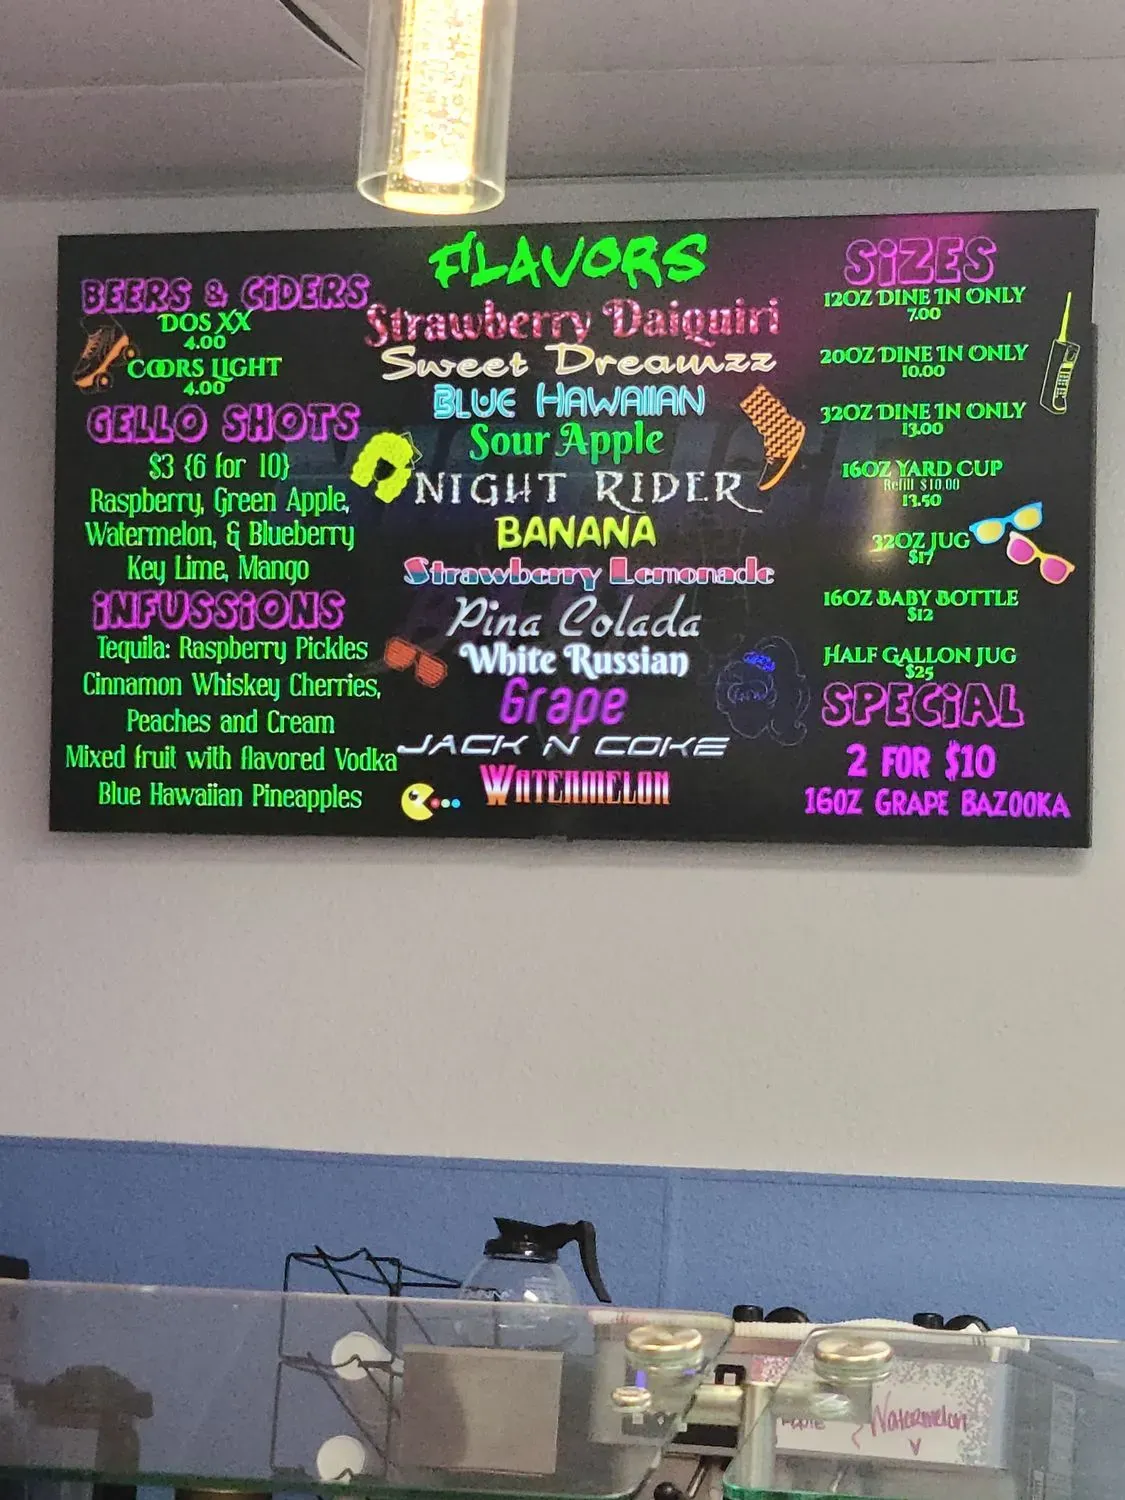 BEERS & CIDERS
DOS XX
4.00
COORS LIGHT
4.00
GELLO SHOTS
$3 {6 for 10}
Raspberry, Green Apple,
Watermelon, & Blueberry
Key Lime, Mango
INFUSSIONS
Tequila: Raspberry Pickles
Cinnamon Whiskey Cherries,
Peaches and Cream
Mixed fruit with flavored Vodka
Blue Hawaiian Pineapples
FLAVORS
Strawberry Daiquiri
Sweet Dreamzz
BLUE HAWAIIAN
Sour Apple
NIGHT RIDER
BANANA
Strawberry Lemonade
Pina Colada
White Russian
Grape
JACK N COKE
WATERMELON
SIZES
12OZ DINE IN ONLY
7.00
20OZ DINE IN ONLY
10.00
32OZ DINE IN ONLY
13.00
16OZ YARD CUP
Refill $10.00
13.50
32OZ JUG
$17
16OZ BABY BOTTLE
$12
HALF GALLON JUG
$25
SPECIAL
2 FOR $10
16OZ GRAPE BAZOOKA
Watermelon